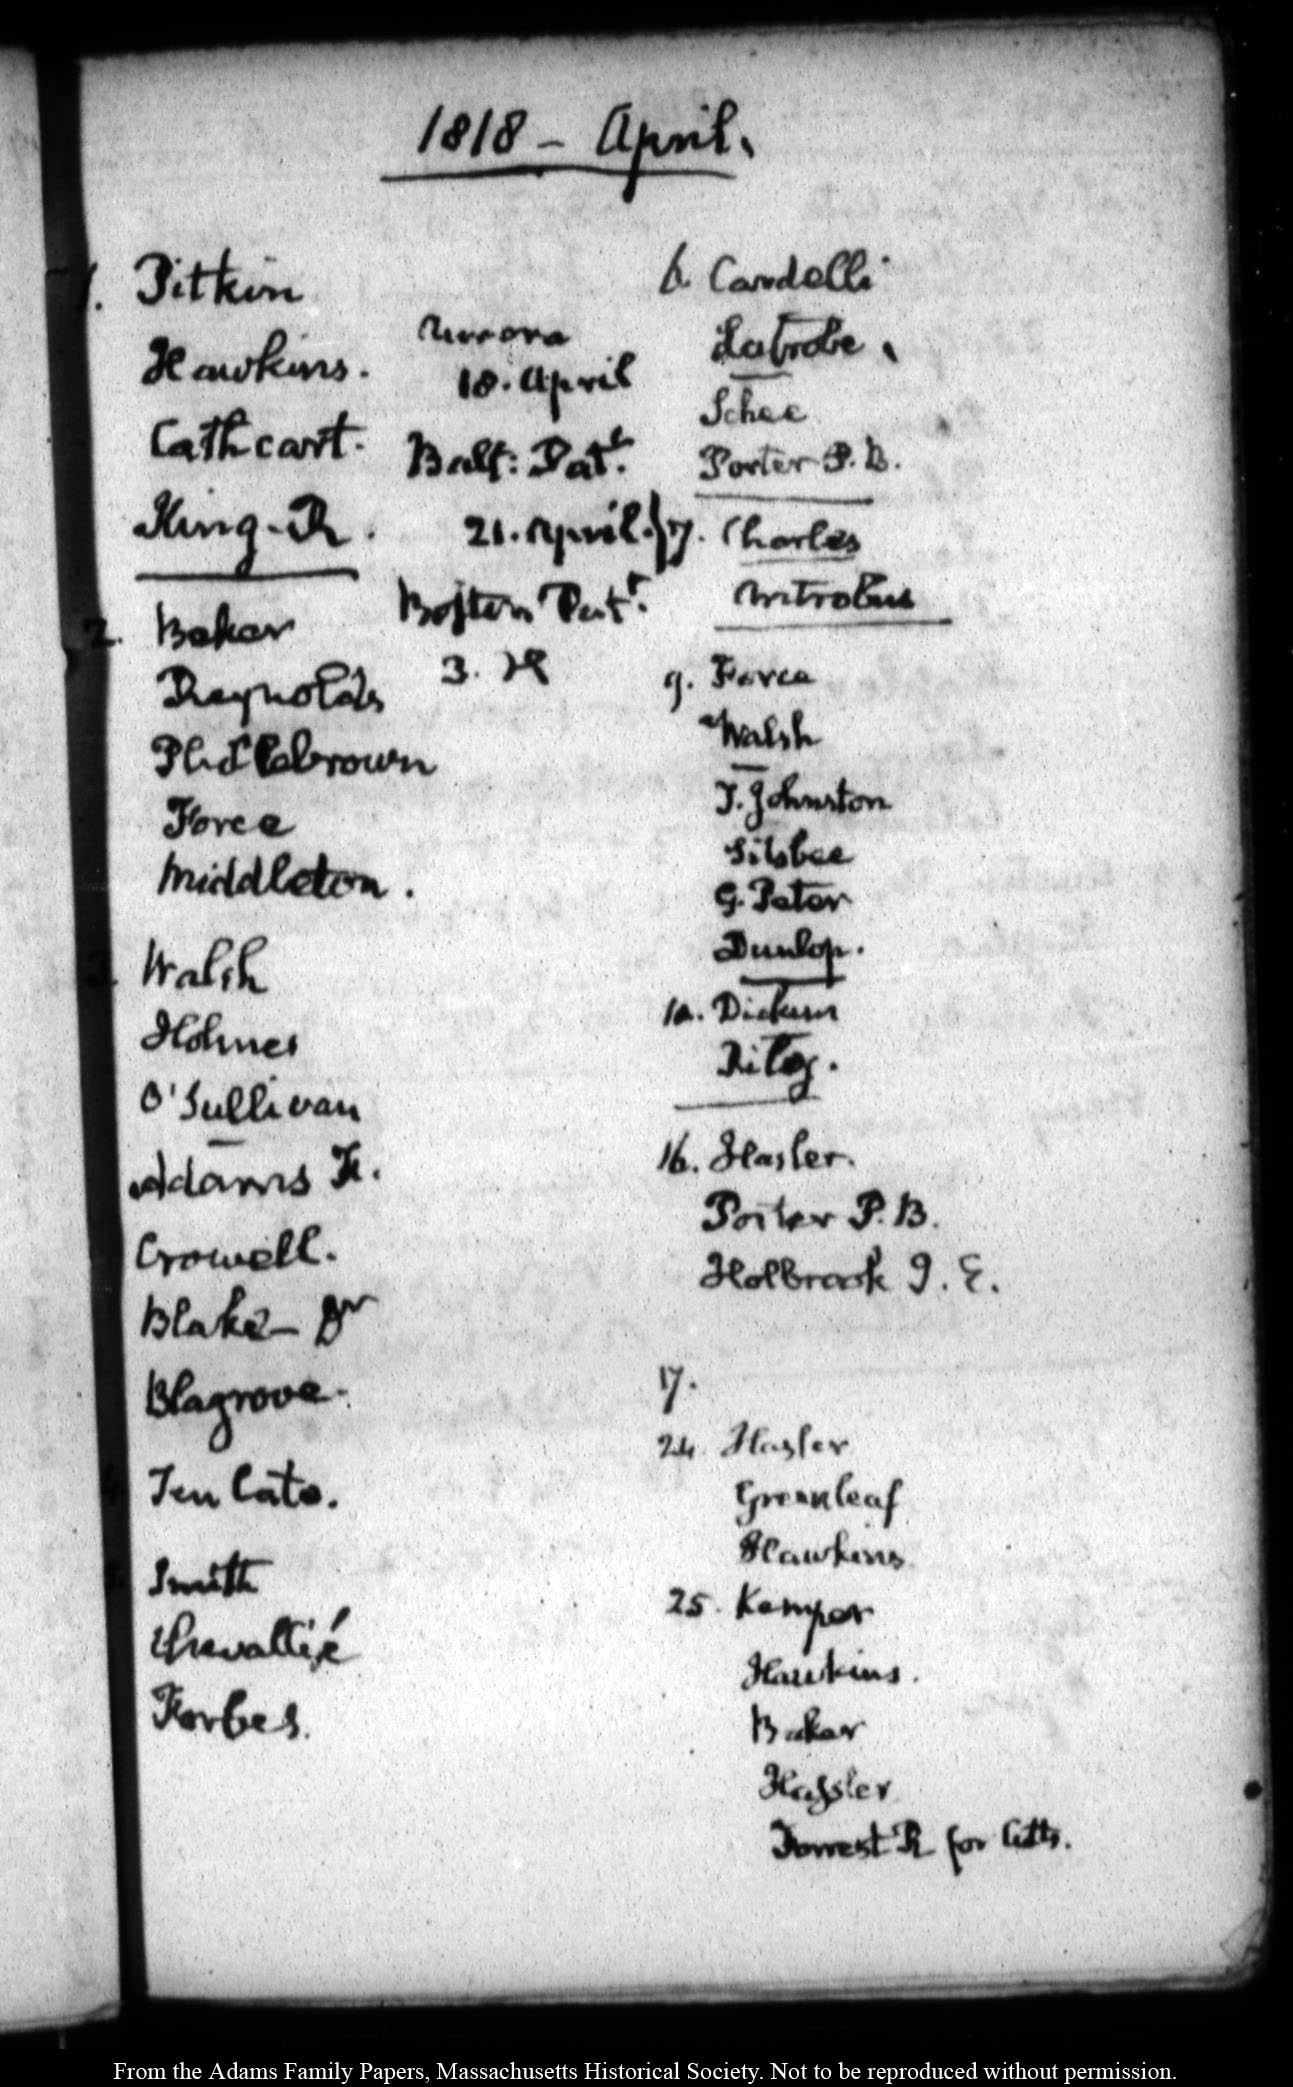 1818 - April.
1. Pitkin
Hawkins.
Cathcart.
King - R.
2. Baker
Reynolds
Force
Middleton.
3. Walsh
Holmes
O'Sullivan
Adams
Crowell.
Blake - Dr
Blagrove.
Ten Cate.
Smith
Chevallié
Forbes.
Aurora
18. April
Balt: Patt.
21. April.
Boston Patt.
3.
6. Cardelli
Latrobe.
Schee
Porter P. B.
7. Charles
Antrobus
9. Force
Walsh
J. Johnston
Silsbee
G. Peter
Dunlop.
10. Dickins
Riley.
16. Hasler.
Porter P. B.
Holbrook J. E.
17.
24. Hasler
Greenleaf
Hawkins
25. Kemper
Hawkins.
Baker
Hassler
Forrest R for Cutts.
From the Adams Family Papers, Massachusetts Historical Society. Not to be reproduced without permission.